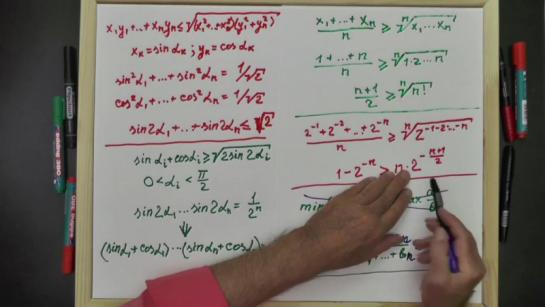 x₁y₁+..+xₙyₙ≤√(x₁²+..+xₙ²)(y₁²+..+yₙ²)
xₖ=sinαₖ; yₖ=cosαₖ
sin²α₁+..+sin²αₙ=1/√2
cos²α₁+..+cos²αₙ=1/√2
sin2α₁+..+sin2αₙ≤√2
sinαᵢ+cosαᵢ≥√2sin2αᵢ
0<αᵢ<π/2
sin2α₁...sin2αₙ=1/2ⁿ
(sinα₁+cosα₁)...(sinαₙ+cosα
(x₁+...+xₙ)/n≥ⁿ√x₁...xₙ
(1+...+n)/n≥ⁿ√1·2...n
(n+1)/2≥ⁿ√n!
(2⁻¹+2⁻²+..+2⁻ⁿ)/n≥ⁿ√2⁻¹⁻²⁻···⁻ⁿ
1-2⁻ⁿ≥n·2^(-(n+1)/2)